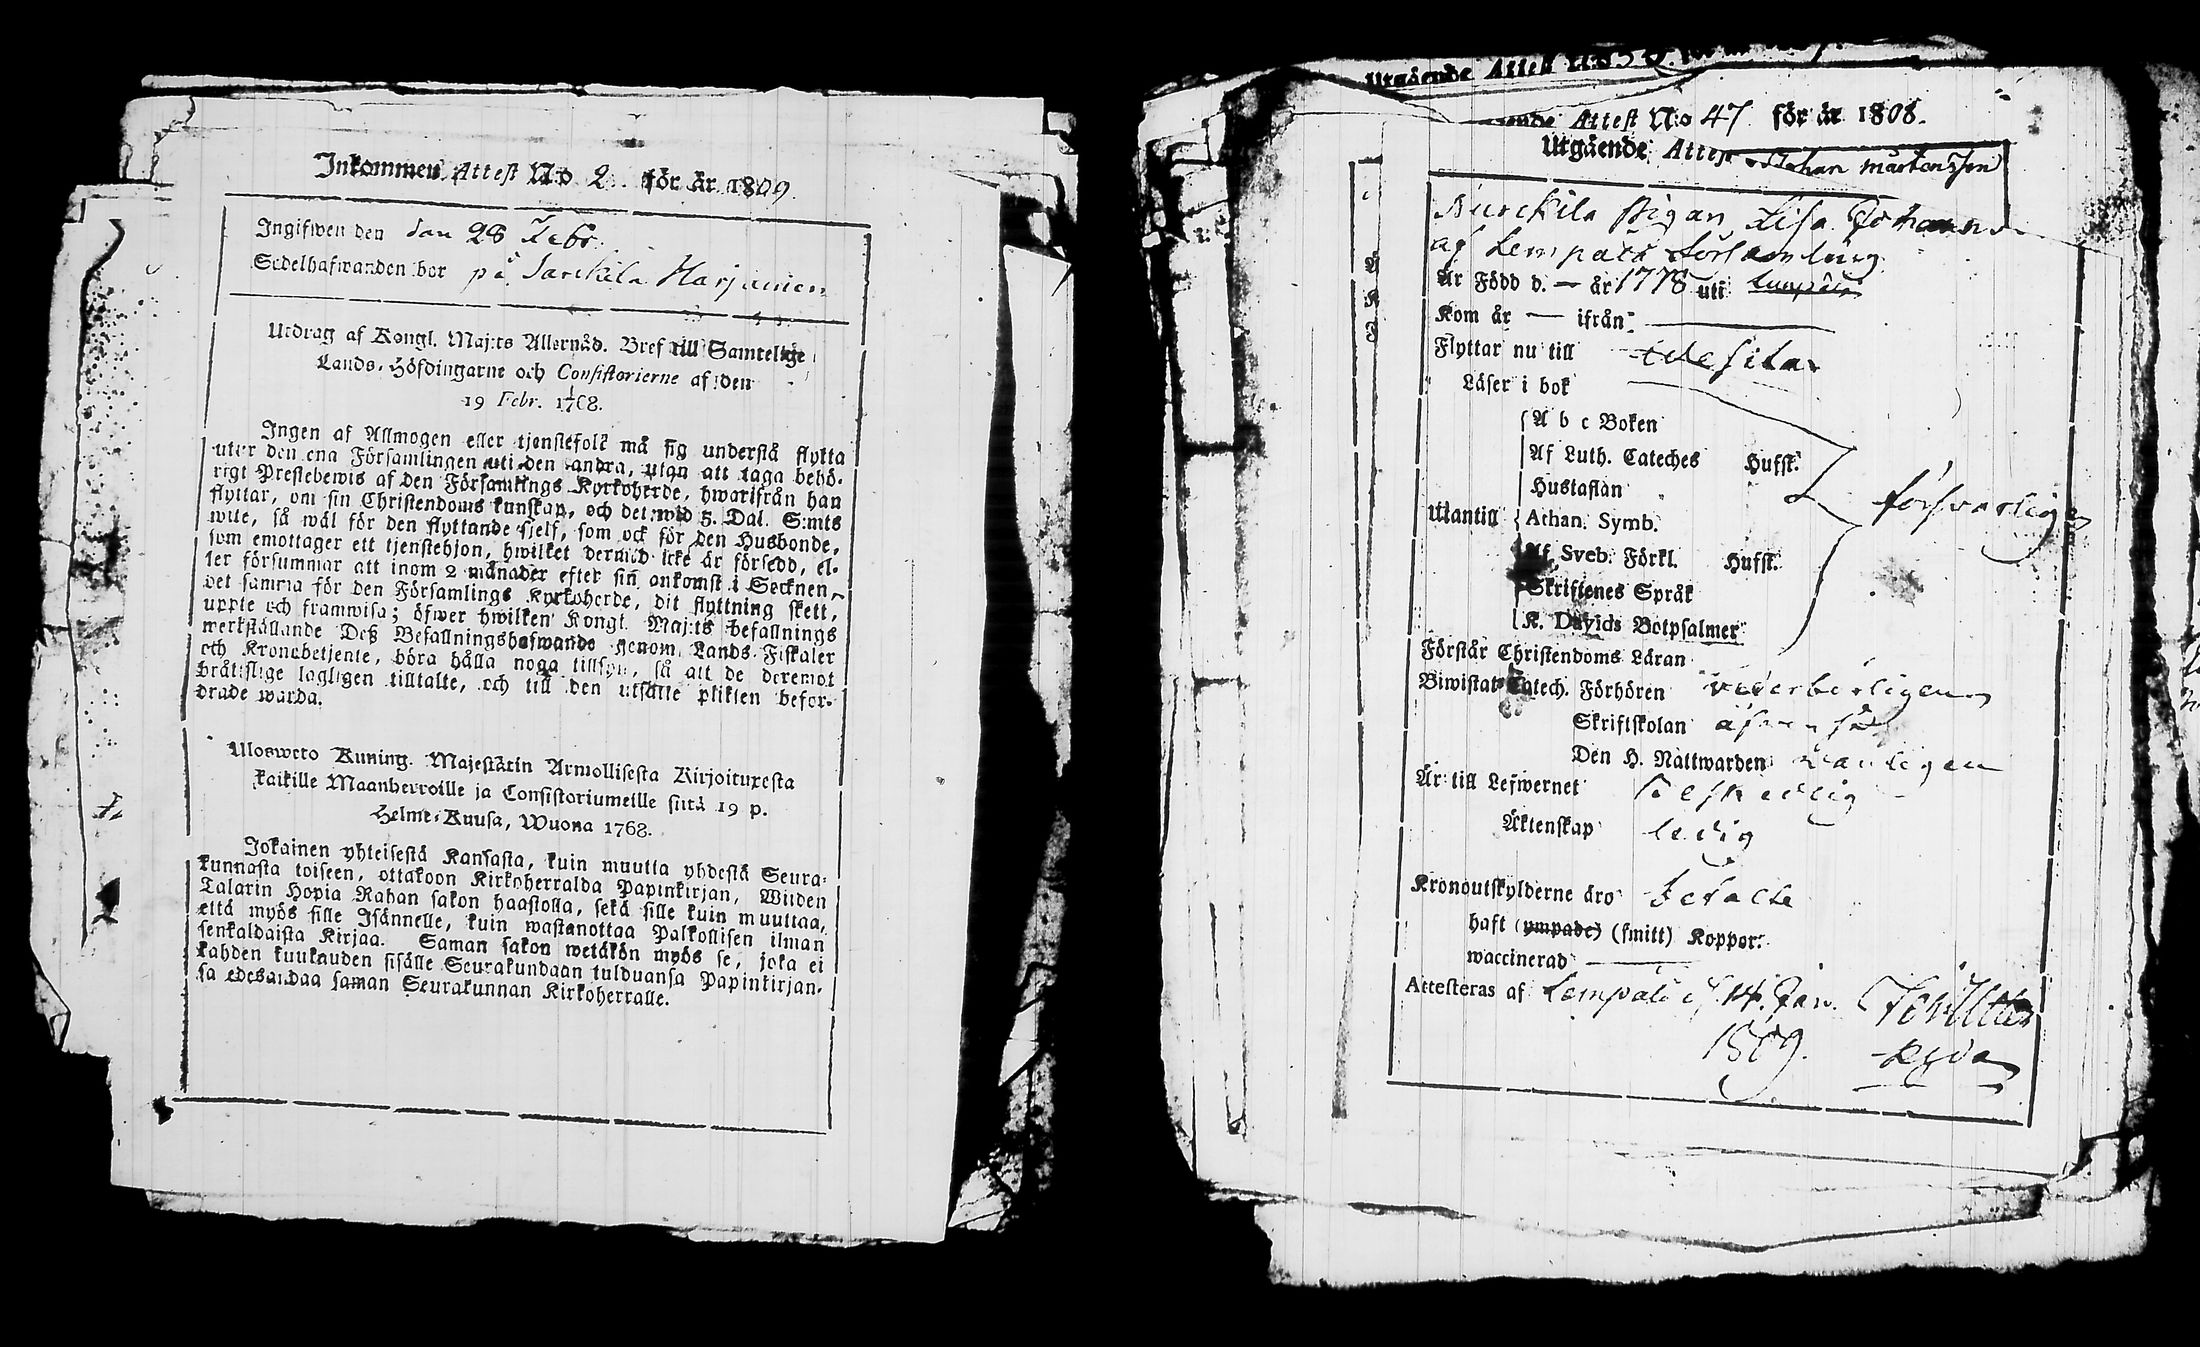 Inkommen Attest N:o 2. för år 1809.
Ingifwen den dan 28 Febr.
Sedelhafwanden bor på Sarckila Harjunien
Utdrag af Kongl. Maj:ts Allernåd. Bref till Samtelige
Lands-Höfdingarne och Consistorierne af den
19 Febr. 1768.
Ingen af Allmogen eller tjenstefolk må sig understå flytta
utur den ena Församlingen uti den andra, utan att taga behö-
rigt Prestebewis af den Församlings Kyrkoherde, hwarifrån han
flyttar, om sin Christendoms kunskap, och det wid 5. Dal. S:mts
wite, så wäl för den flyttande sjelf, som ock för den Husbonde,
som emottager ett tjenstehjon, hwilket dermed icke är försedd, el-
ler försummar att inom 2 månader efter sin ankomst i Socknen,
det samma för den Församlings Kyrkoherde, dit flyttning skett,
uppte och framwisa; öfwer hwilken Kongl. Maj:ts befallnings
werkställande Deß Befallningshafwande genom Lands-Fiskaler
och Kronobetjente, böra hålla noga tillsyn, så att de deremot
bråttslige lagligen tilltalte, och till den utsatte plikten befor-
drade warda.
Ulosweto Kuning. Majestätin Armollisesta Kirjoituxesta
kaikille Maanherroille ja Consistoriumeille siitä 19 p.
Helme-Kuusa, Wuona 1768.
Jokainen yhteisestä Kansasta, kuin muutta yhdestä Seura-
kunnasta toiseen, ottakoon Kirkoherralda Papinkirjan, Wiiden
Talarin Hopia Rahan sakon haastolla, sekä sille kuin muuttaa,
että myös sille Isännelle, kuin wastanottaa Palkollisen ilman
senkaldaista Kirjaa. Saman sakon wetäkön myös se, joka ei
kahden kuukauden sisälle Seurakundaan tulduansa Papinkirjan-
sa edesandaa saman Seurakunnan Kirkoherralle.
Utgående Attest N:o
Attest N:o 47 för år 1808.
Utgående Attest Johan Mårtensson
pigan Lisa Johans
af Lempälä församling
Är Född d. — år 1778 uti
Kom år — ifrån
Flyttar nu till
Läser i bok
A b c Boken
Af Luth. Cateches Hufst.
Hustaflan
Utantill Athan. Symb.
försvarligen
Af Sveb. Förkl. Hufst.
Skriftenes Språk
K. Davids Botpsalmer
Förstår Christendoms Läran
Biwistat Catech. Förhören vederbörligen
Skriftskolan äfven så
Den H. Nattwarden vanligen
Är till Lefwernet beskedlig
Äktenskap ledig
Kronoutskylderne äro betalte
haft (ympade) (smitt) Koppor.
waccinerad
Attesteras af Lempälä d. 14. Jan.
1809.